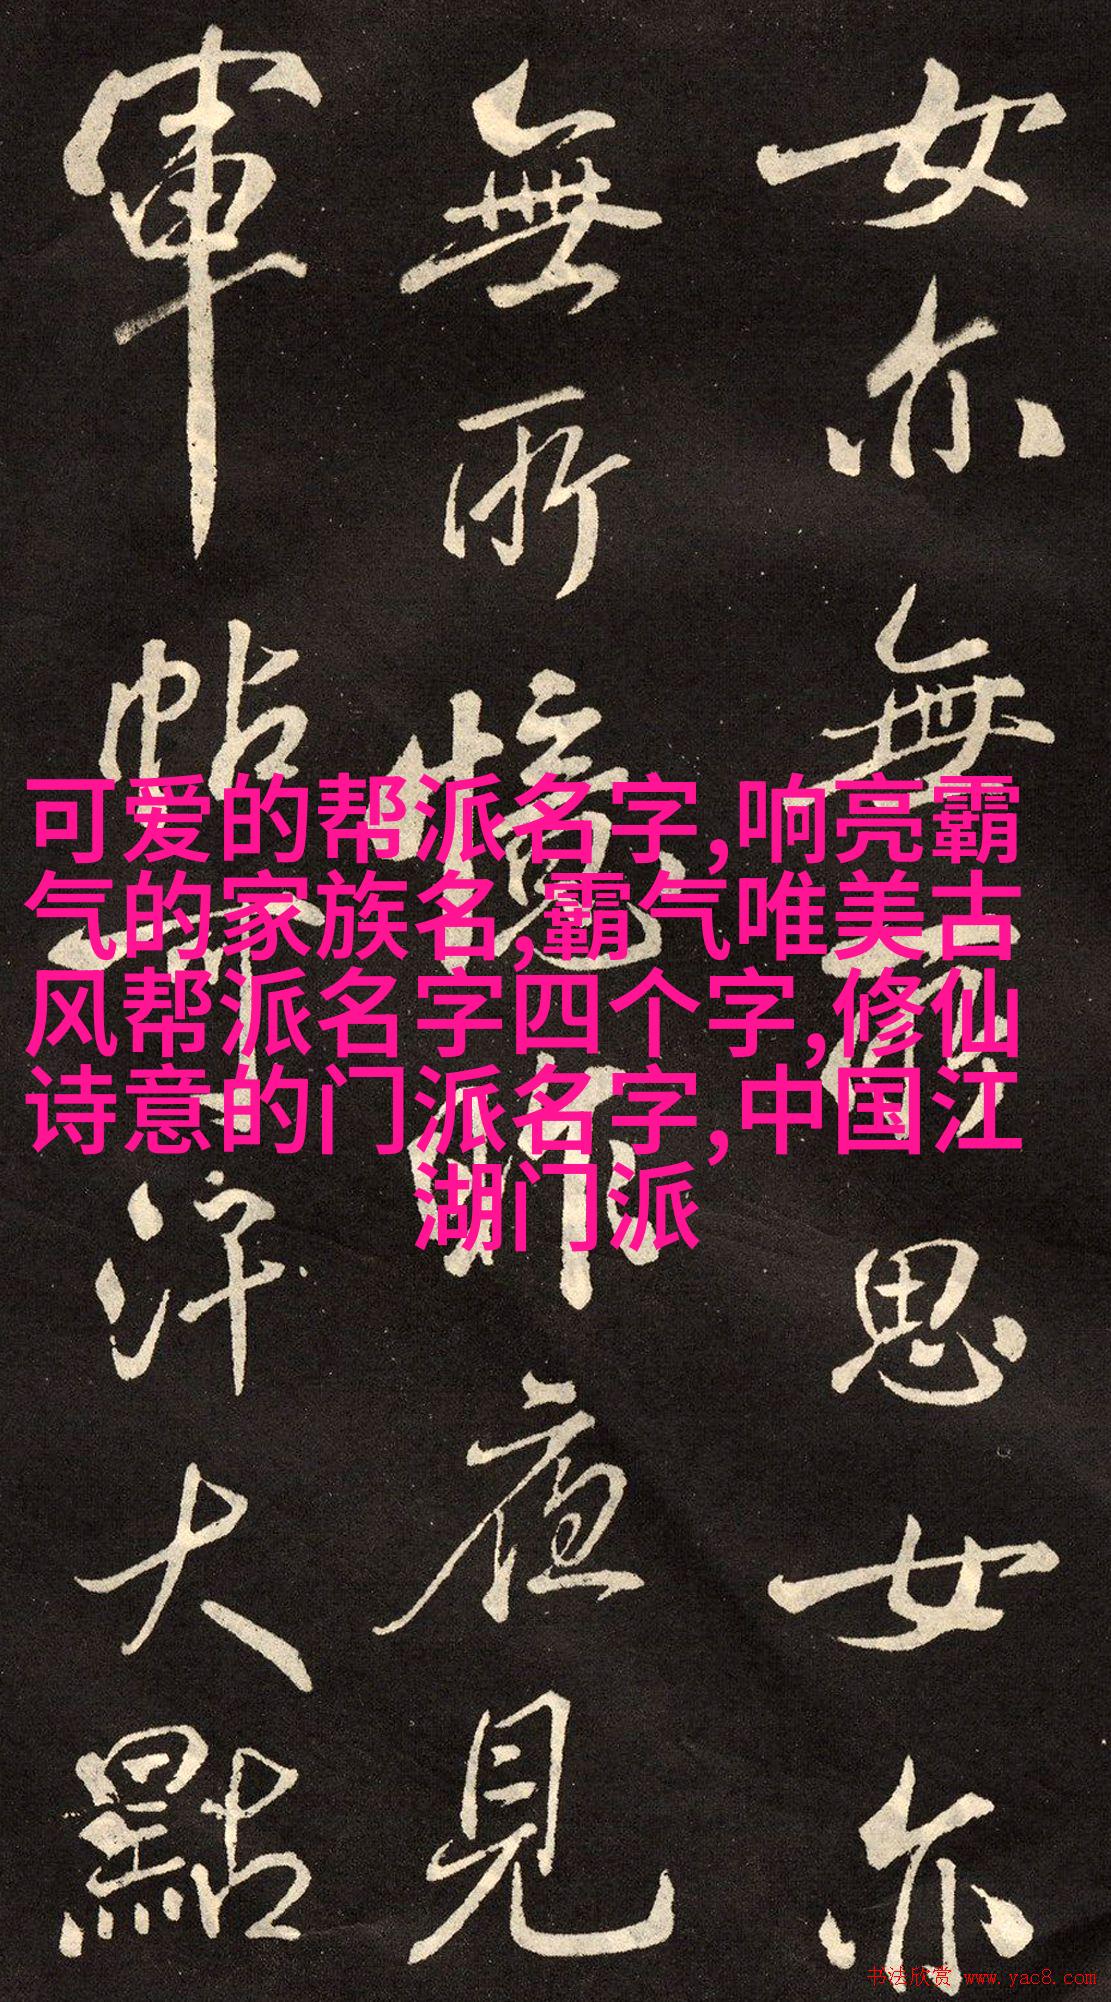 女亦無所思女亦
無所憶昨夜見
軍帖可汗大點
可爱的帮派名字,响亮霸
气的家族名,霸气唯美古
风帮派名字四个字,修仙
诗意的门派名字,中国江
湖门派
书法欣赏 www.yac8.com